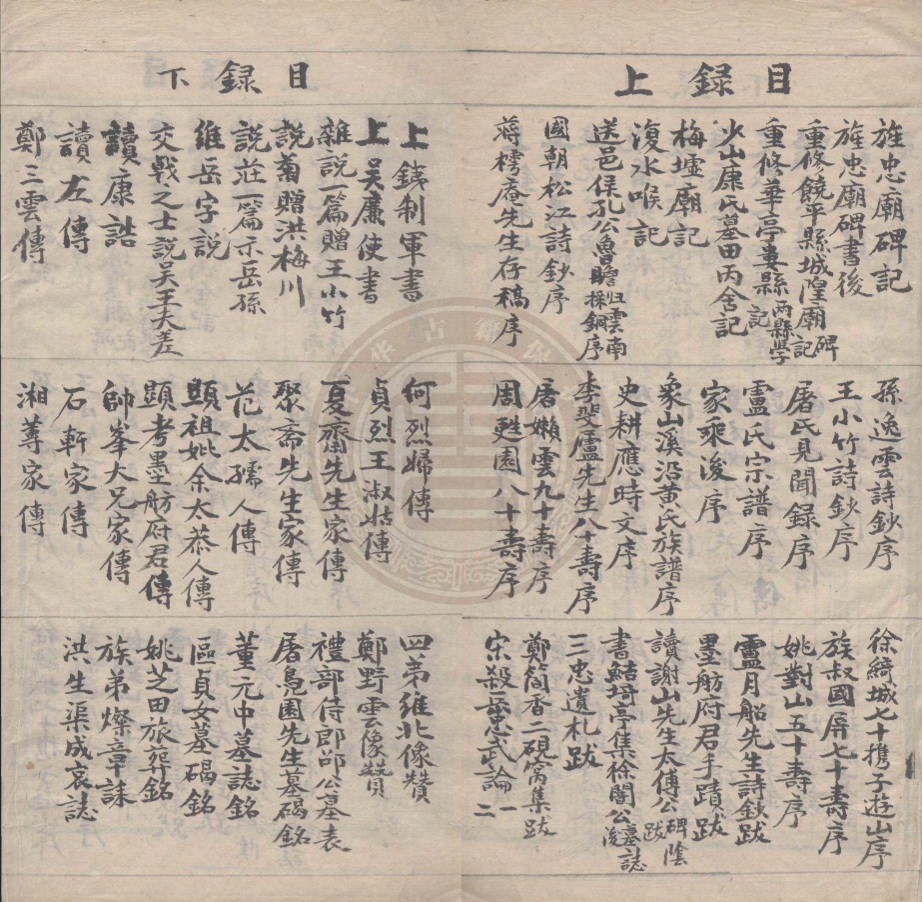 目錄上
旌忠廟碑記
旌忠廟碑書後
重修饒平縣城隍廟碑記
重修華亭婁縣兩縣學記
少山康氏墓田丙舍記
梅墟廟記
復水喉記
送邑侯孔公魯瞻歸雲南採銅序
國朝松江詩鈔序
蔣樗庵先生存稿序
孫逸雲詩鈔序
王小竹詩鈔序
屠氏見聞錄序
盧氏宗譜序
家乘後序
象山溪沿黃氏族譜序
史耕應時文序
李斐廬先生八十壽序
屠嬾雲九十壽序
周甦園八十壽序
徐綺城七十携子遊山序
族叔國屏七十壽序
姚對山五十壽序
盧月船先生詩鈔跋
墨舫府君手蹟跋
讀謝山先生太傅公碑陰跋
書鮚埼亭集徐闇公墓誌後
三忠遺札跋
鄭簡香二硯窩集跋
宋殺岳忠武論一二
目錄下
上錢制軍書
上吳廉使書
雜說一篇贈王小竹
說菊贈洪梅川
說莊一篇示岳孫
維岳字說
交戰之士說吳王夫差
讀康誥
讀左傳
鄭三雲傳
何烈婦傳
貞烈王淑姑傳
夏齋先生家傳
聚斋先生家傳
范太孺人傳
顯祖妣余太恭人傳
顯考墨舫府君傳
帥峯大兄家傳
石軒家傳
湘蓴家傳
四弟維北像贊
鄭野雲像贊
禮部侍郎邵公墓表
屠凫園先生墓碣銘
董元中墓誌銘
區貞女墓碣銘
姚芝田旅葬銘
族弟燦章誄
洪生渠成哀誌